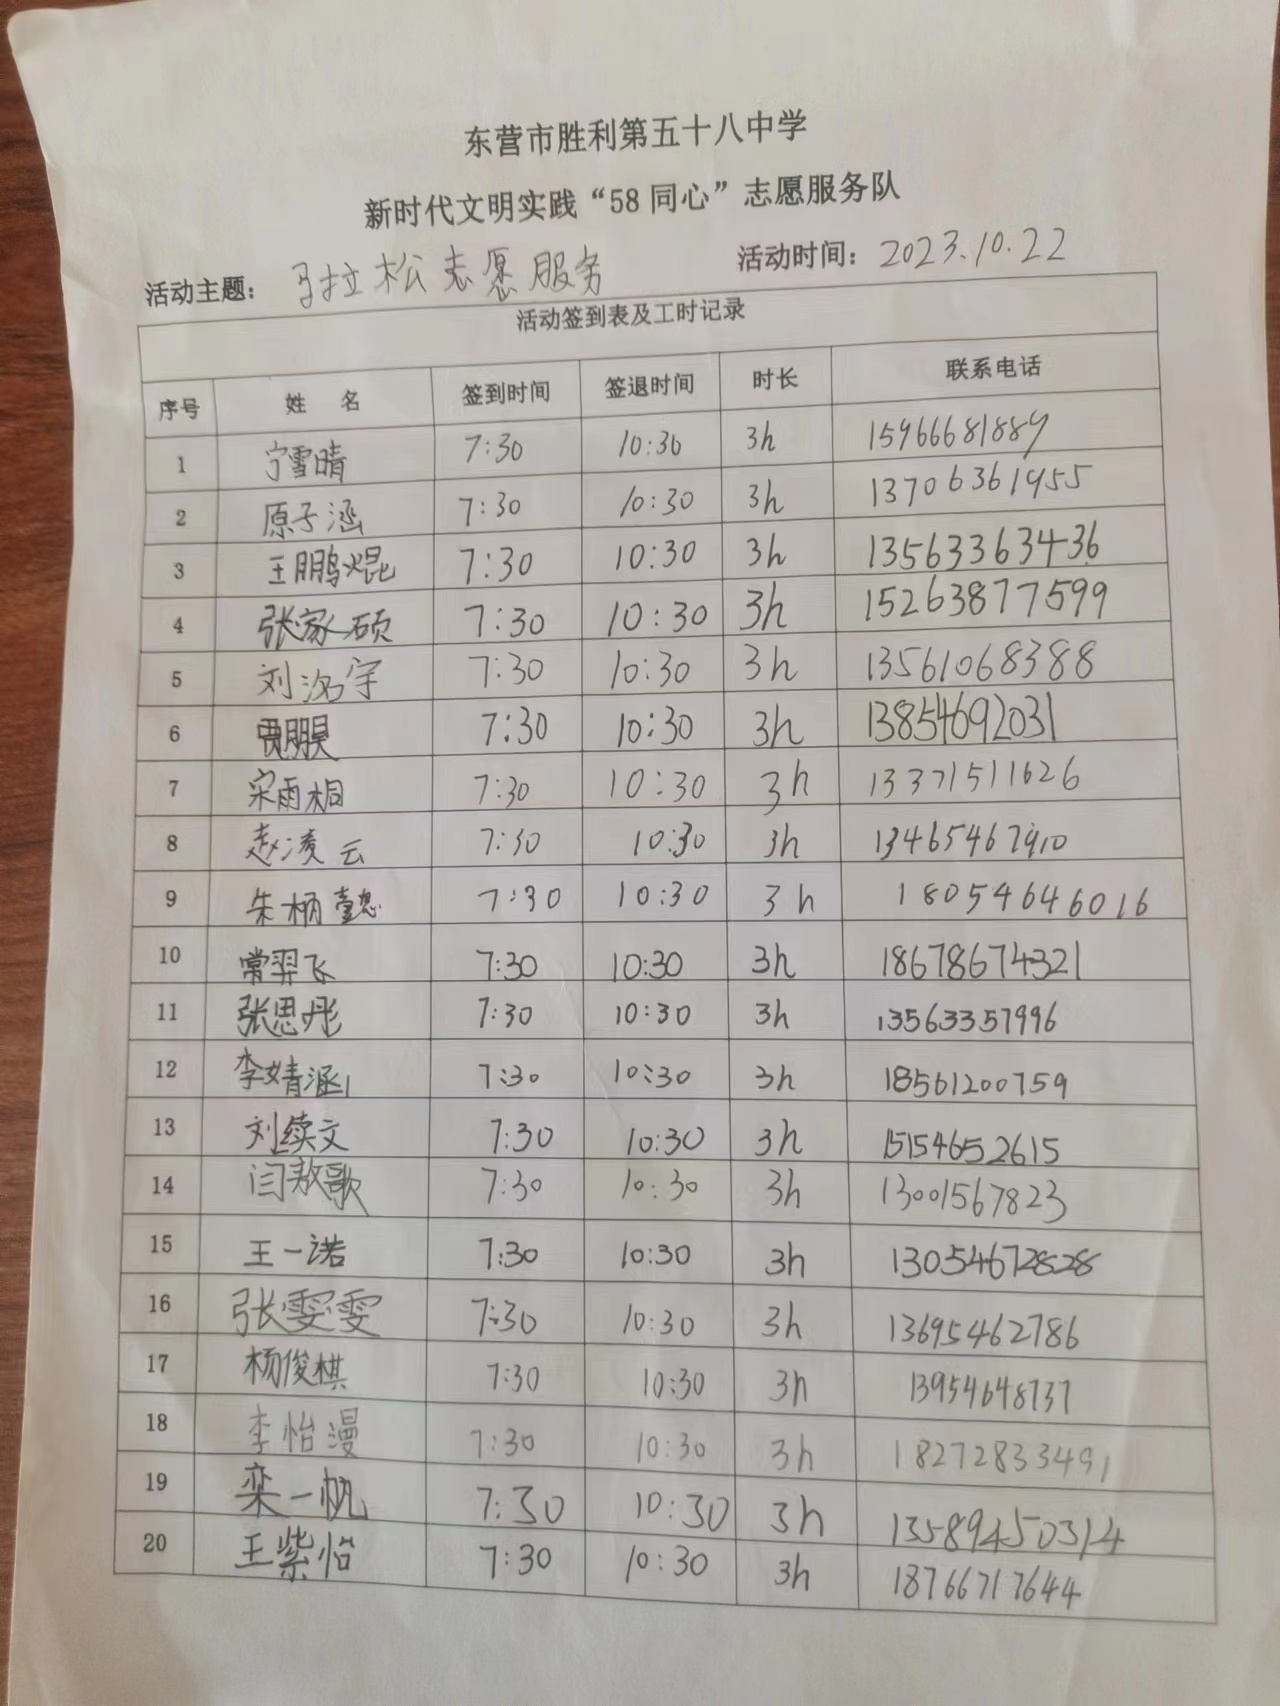 东营市胜利第五十八中学
新时代文明实践“58同心”志愿服务队
活动主题： 马拉松志愿服务 活动时间：2023.10.22
活动签到表及工时记录
序号 姓 名 签到时间 签退时间 时长 联系电话
1 宁雪晴 7:30 10:30 3h 15966681889
2 原子涵 7:30 10:30 3h 13706361955
3 王鹏焜 7:30 10:30 3h 13563363436
4 张家硕 7:30 10:30 3h 15263877599
5 刘洺宇 7:30 10:30 3h 13561068388
6 贾朋昊 7:30 10:30 3h 13854692031
7 宋雨桐 7:30 10:30 3h 13371511626
8 赵凌云 7:30 10:30 3h 13465467910
9 朱柄懿 7:30 10:30 3h 18054646016
10 常羿飞 7:30 10:30 3h 18678674321
11 张思彤 7:30 10:30 3h 13563357996
12 李婧涵 7:30 10:30 3h 18561200759
13 刘续文 7:30 10:30 3h 15154652615
14 闫敖歌 7:30 10:30 3h 13001567823
15 王一诺 7:30 10:30 3h 13054672828
16 张雯雯 7:30 10:30 3h 13695462786
17 杨俊棋 7:30 10:30 3h 13954648737
18 李怡漫 7:30 10:30 3h 18272833491
19 栾一帆 7:30 10:30 3h 13589450314
20 王紫怡 7:30 10:30 3h 18766717644